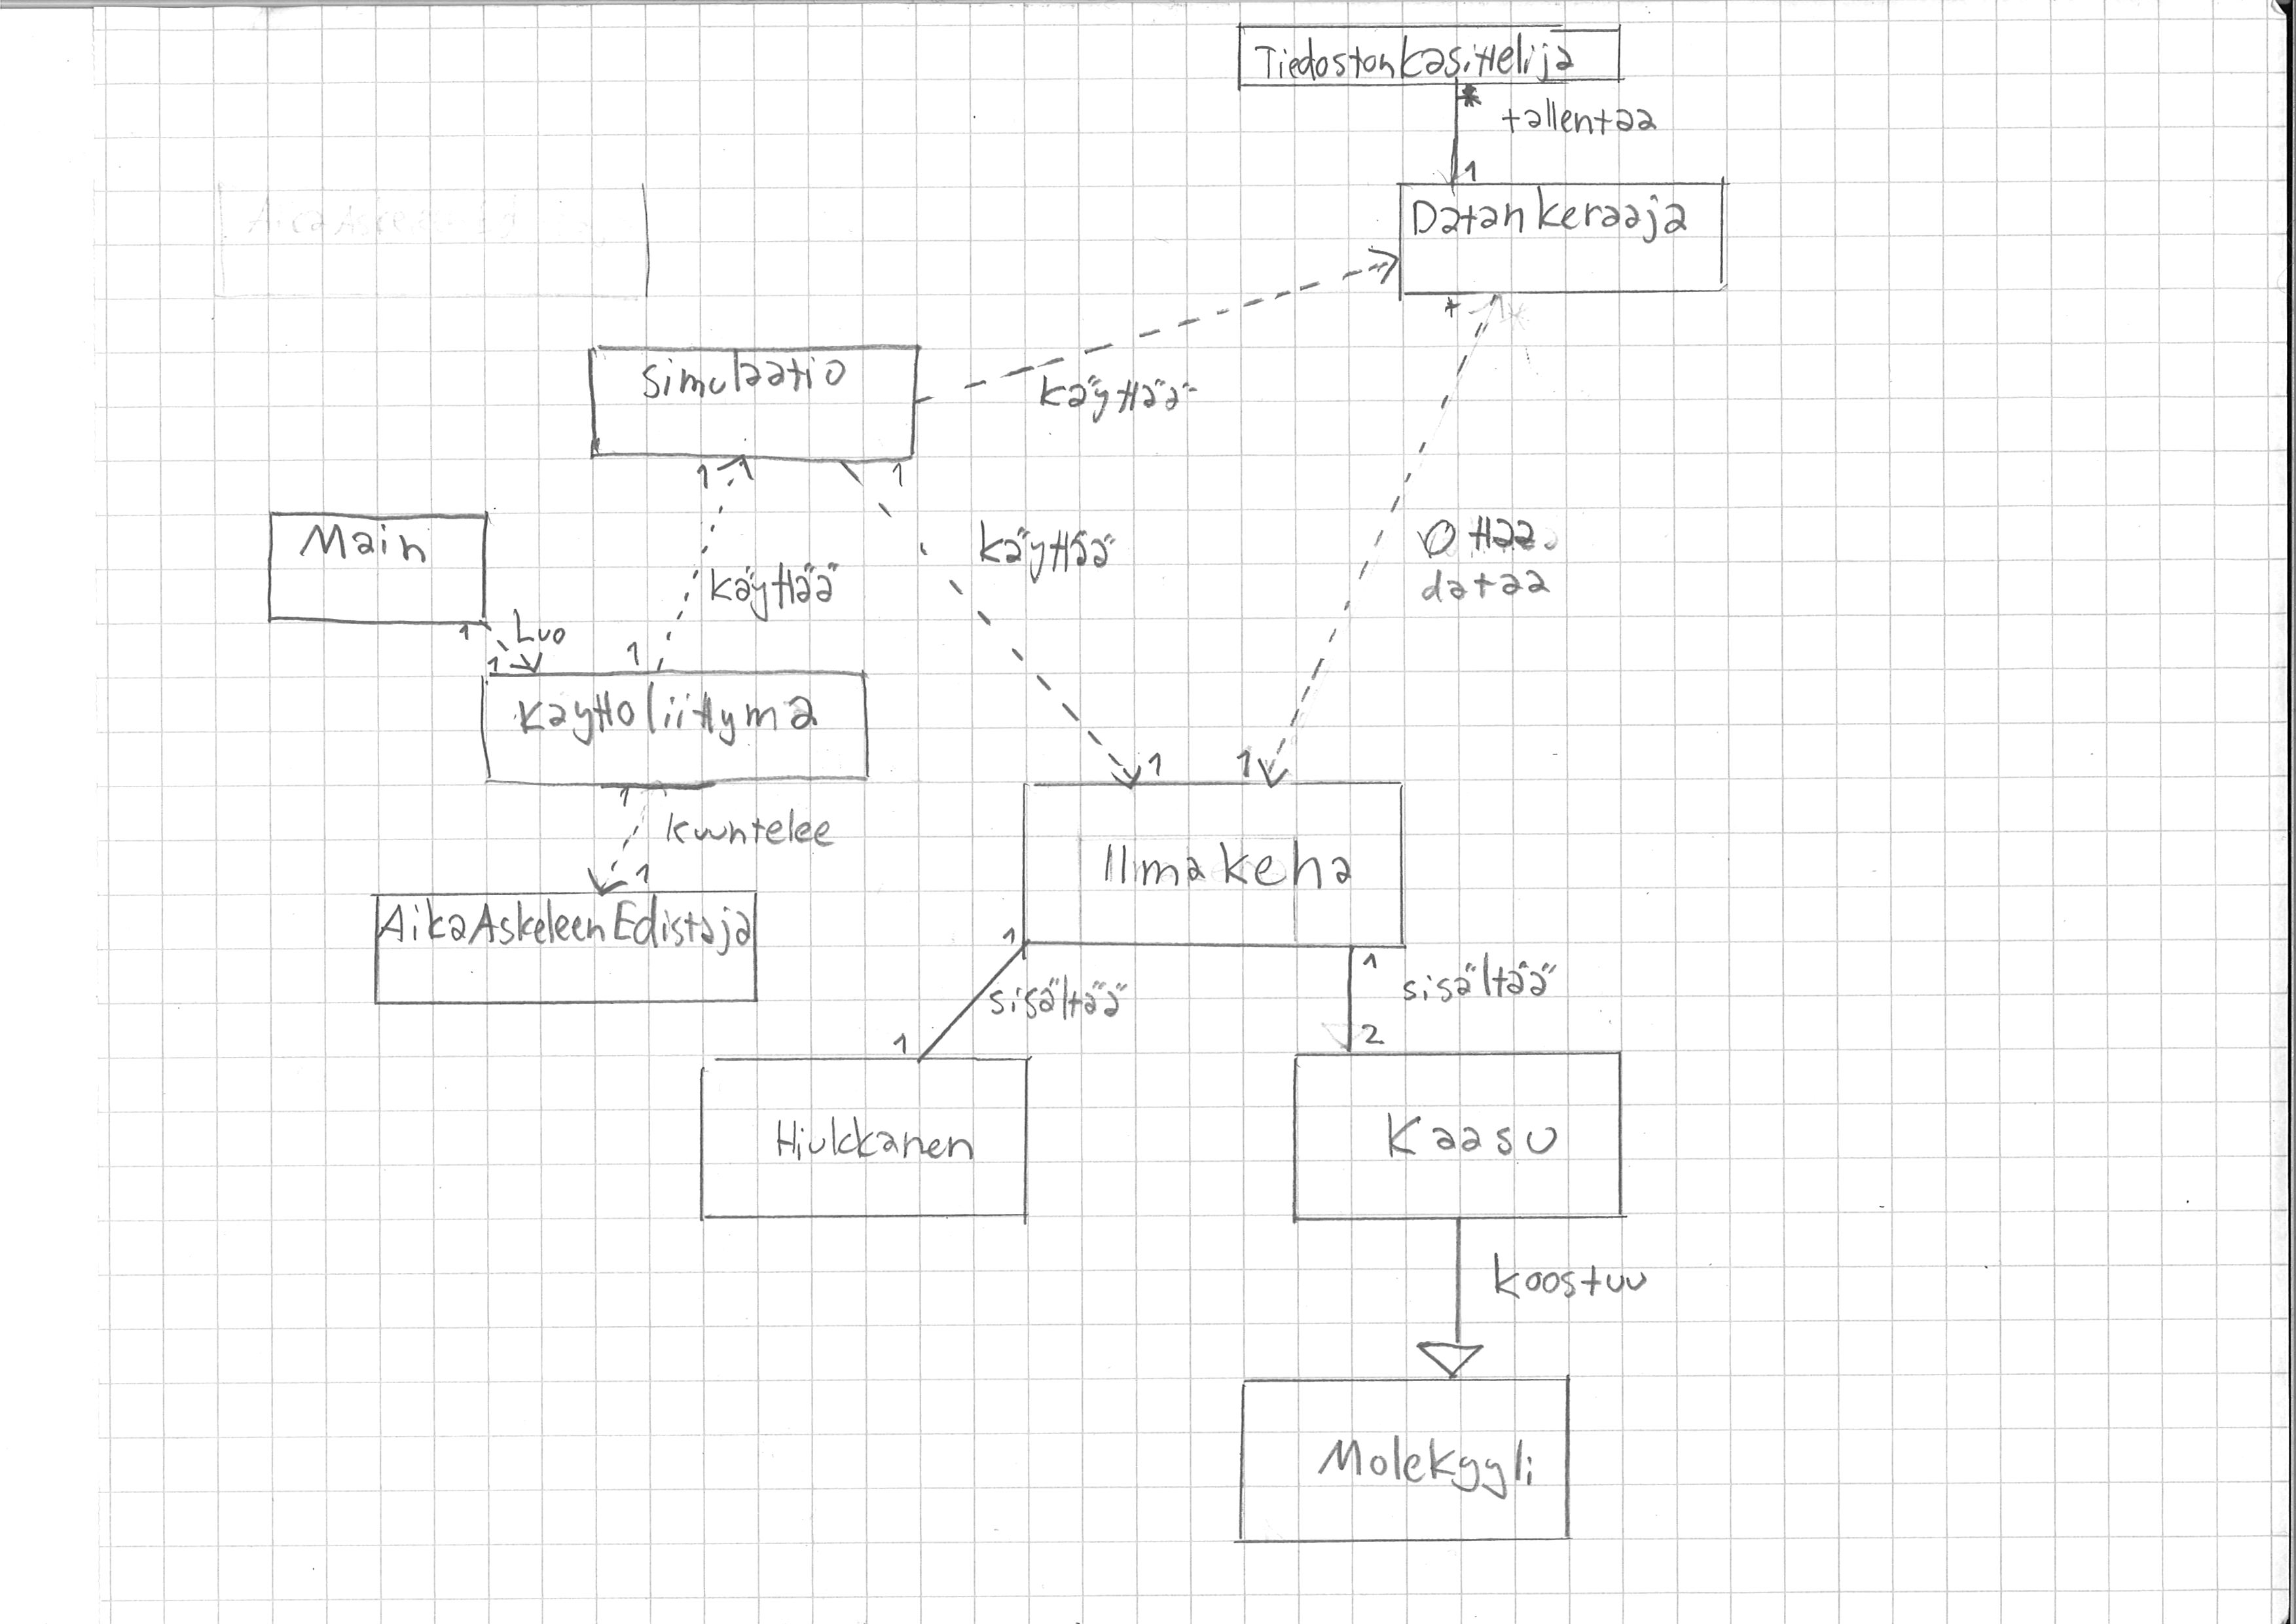 Tiedostonkasittelija
*
tallentaa
1
Datankeraaja
*
Simulaatio
käyttää
1
1
Main
käyttää
ottaa
dataa
käyttää
1
Luo
1
1
Kayttoliittyma
1
1
1
kuuntelee
1
Ilmakeha
AikaAskeleenEdistaja
1
1
sisältää
sisältää
1
2
Hiukkanen
Kaasu
koostuu
Molekyyli